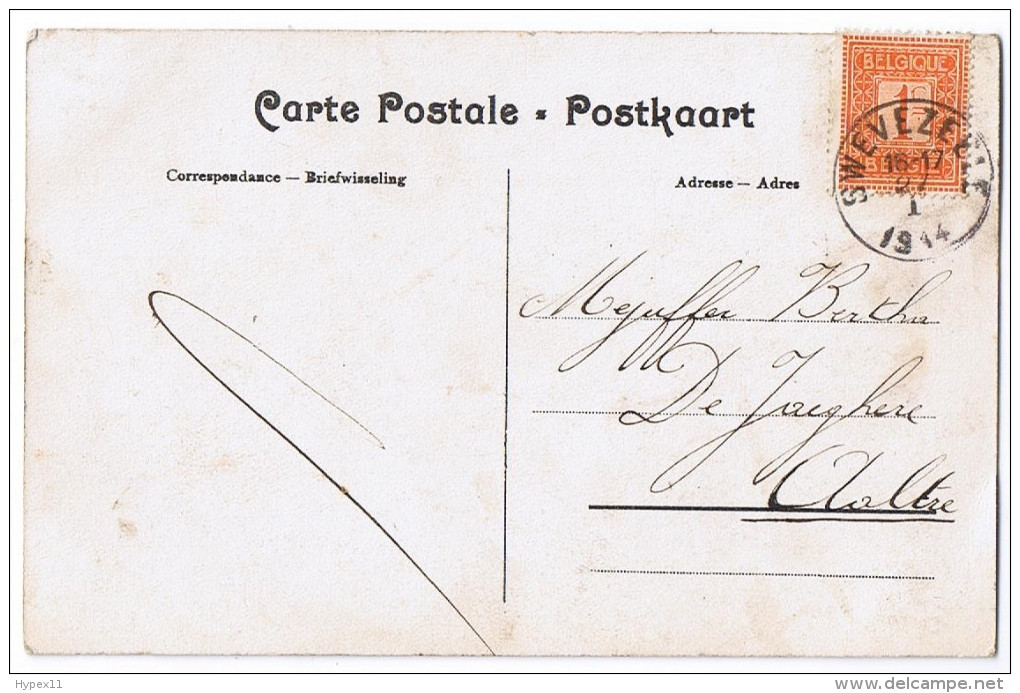 Carte Postale - Postkaart
Correspondance — Briefwisseling
Adresse — Adres
BELGIQUE
1c
SWEVEZEELE
16-17
27
I
1914
Mejuffer Bertha
De Jaeghere
Aeltre
Hypex11
delcampe.net